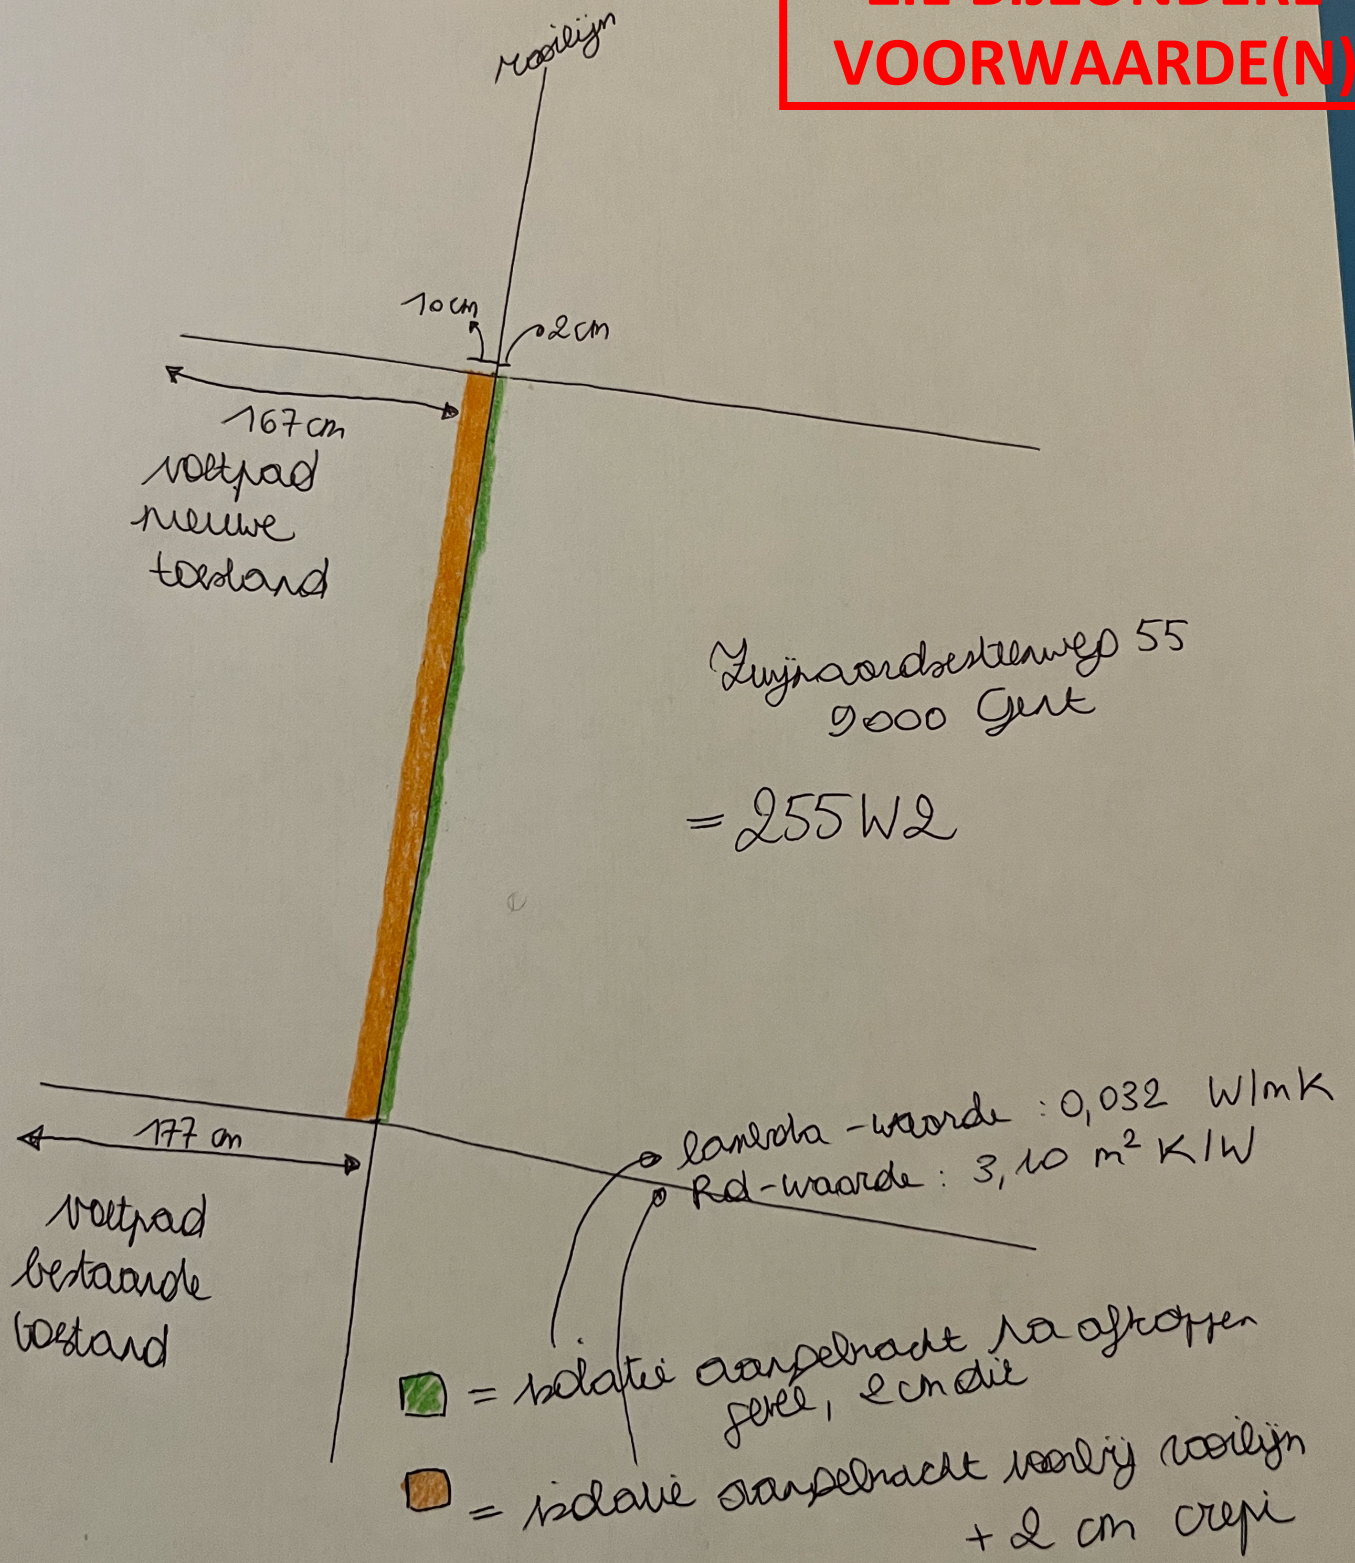 VOORWAARDE(N)
rooilijn
10 cm
2 cm
167 cm
voetpad
nieuwe
toestand
Zwijnaardsesteenweg 55
9000 Gent
= 255W2
177 cm
voetpad
bestaande
toestand
lambda-waarde : 0,032 W/mK
Rd-waarde : 3,10 m² K/W
= isolatie aangebracht na afkappen
gevel, 2cm dik
= isolatie aangebracht voorbij rooilijn
+ 2 cm crepi